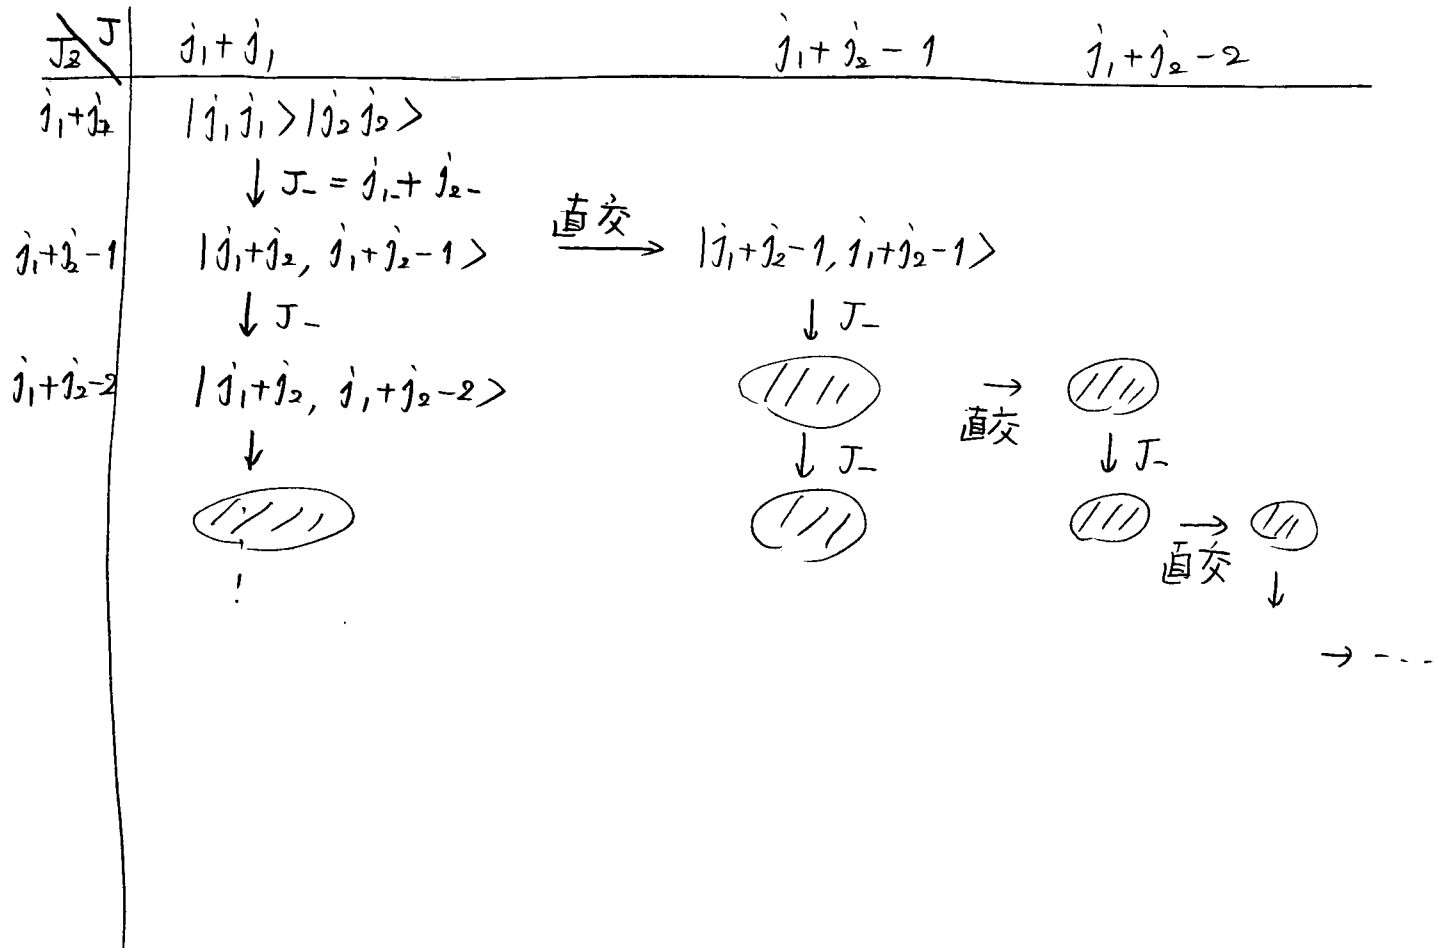 J_z \ J    j₁+j₁    j₁+j₂-1    j₁+j₂-2
j₁+j₂    |j₁j₁>|j₂j₂>
↓ J₋ = j₁₋+j₂₋
j₁+j₂-1    |j₁+j₂, j₁+j₂-1>    直交 →    |j₁+j₂-1, j₁+j₂-1>
↓ J₋    ↓ J₋
j₁+j₂-2    |j₁+j₂, j₁+j₂-2>    → 直交
↓    ↓ J₋    ↓ J₋
→ 直交
↓
→ ----